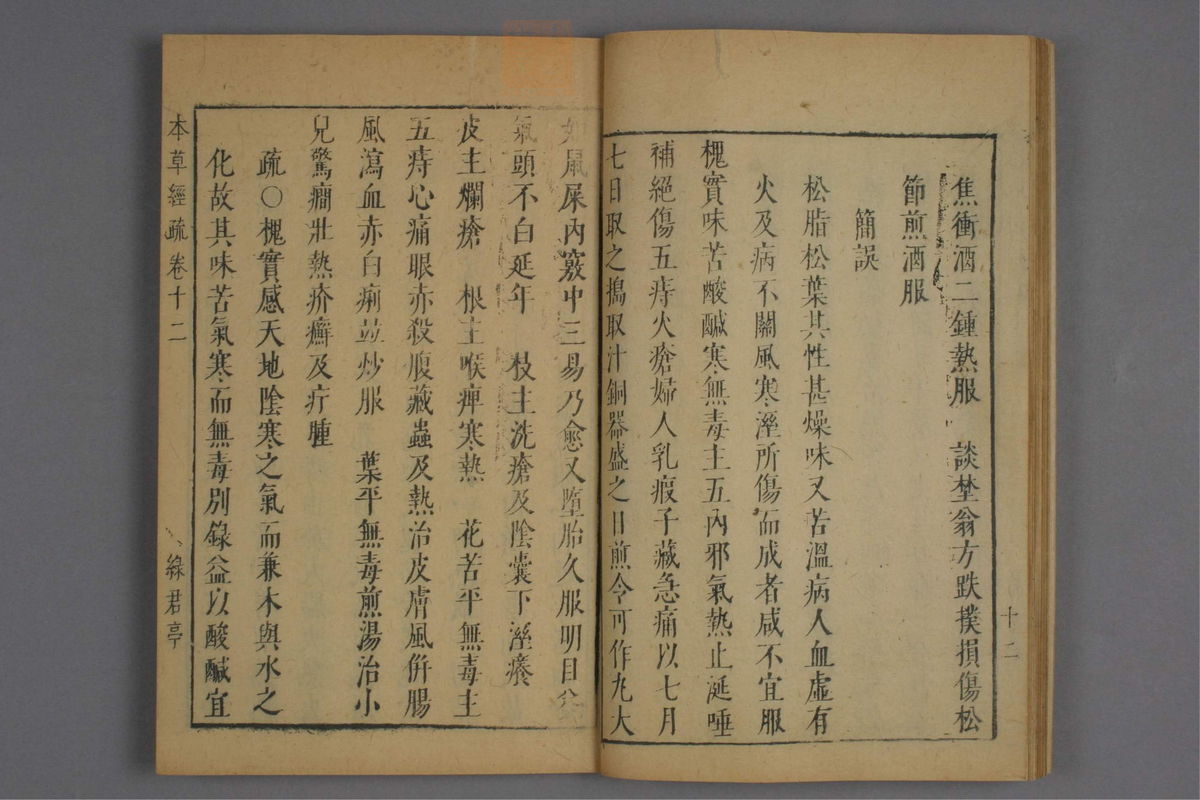 焦衝酒二鍾熱服　談埜翁方跌撲損傷松
節煎酒服
簡誤
松脂松葉其性甚燥味又苦溫病人血虛有
火及病不關風寒溼所傷而成者咸不宜服
槐實味苦酸鹹寒無毒主五內邪氣熱止涎唾
補絕傷五痔火瘡婦人乳瘕子藏急痛以七月
七日取之搗取汁銅器盛之日煎令可作丸大
十二
如鼠屎內竅中三易乃愈又墮胎久服明目益
氣頭不白延年　枝主洗瘡及陰囊下溼癢
皮主爛瘡　根主喉痺寒熱　花苦平無毒主
五痔心痛眼赤殺腹藏蟲及熱治皮膚風併腸
風瀉血赤白痢並炒服　葉平無毒煎湯治小
兒驚癇壯熱疥癬及疔腫
疏〇槐實感天地陰寒之氣而兼木與水之
化故其味苦氣寒而無毒別錄益以酸鹹宜
本草經疏卷十二
綠君亭